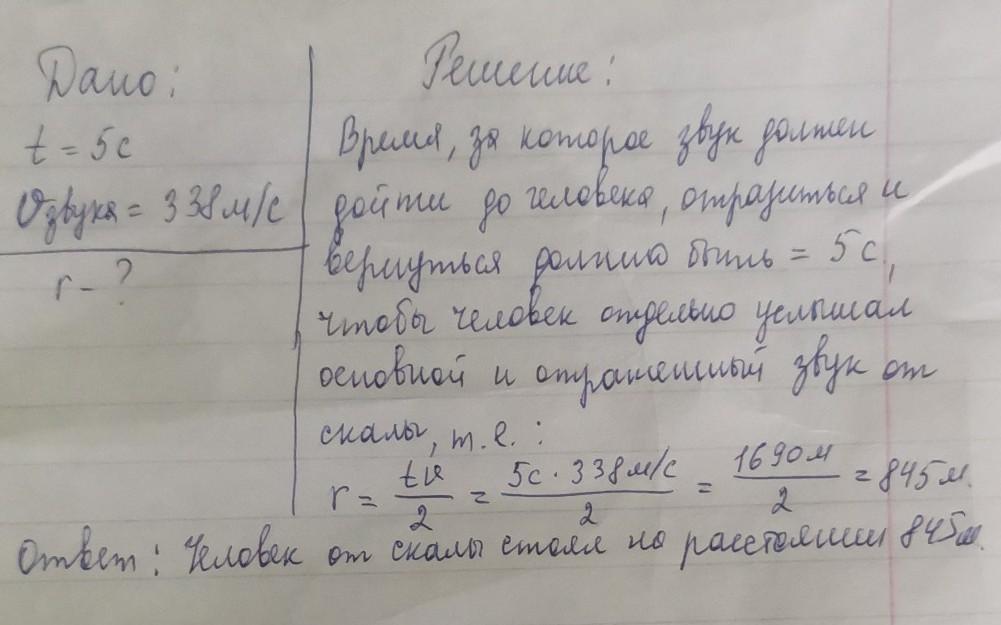 Дано:
t = 5с
υзвука = 338м/с
r - ?
Решение:
Время, за которое звук должен
дойти до человека, отразиться и
вернуться должно быть = 5с,
чтобы человек отдельно услышал
основной и отраженный звук от
скалы, т.е.:
r = tυ/2 = 5с · 338м/с/2 = 1690м/2 = 845м.
Ответ: Человек от скалы стоял на расстоянии 845м.